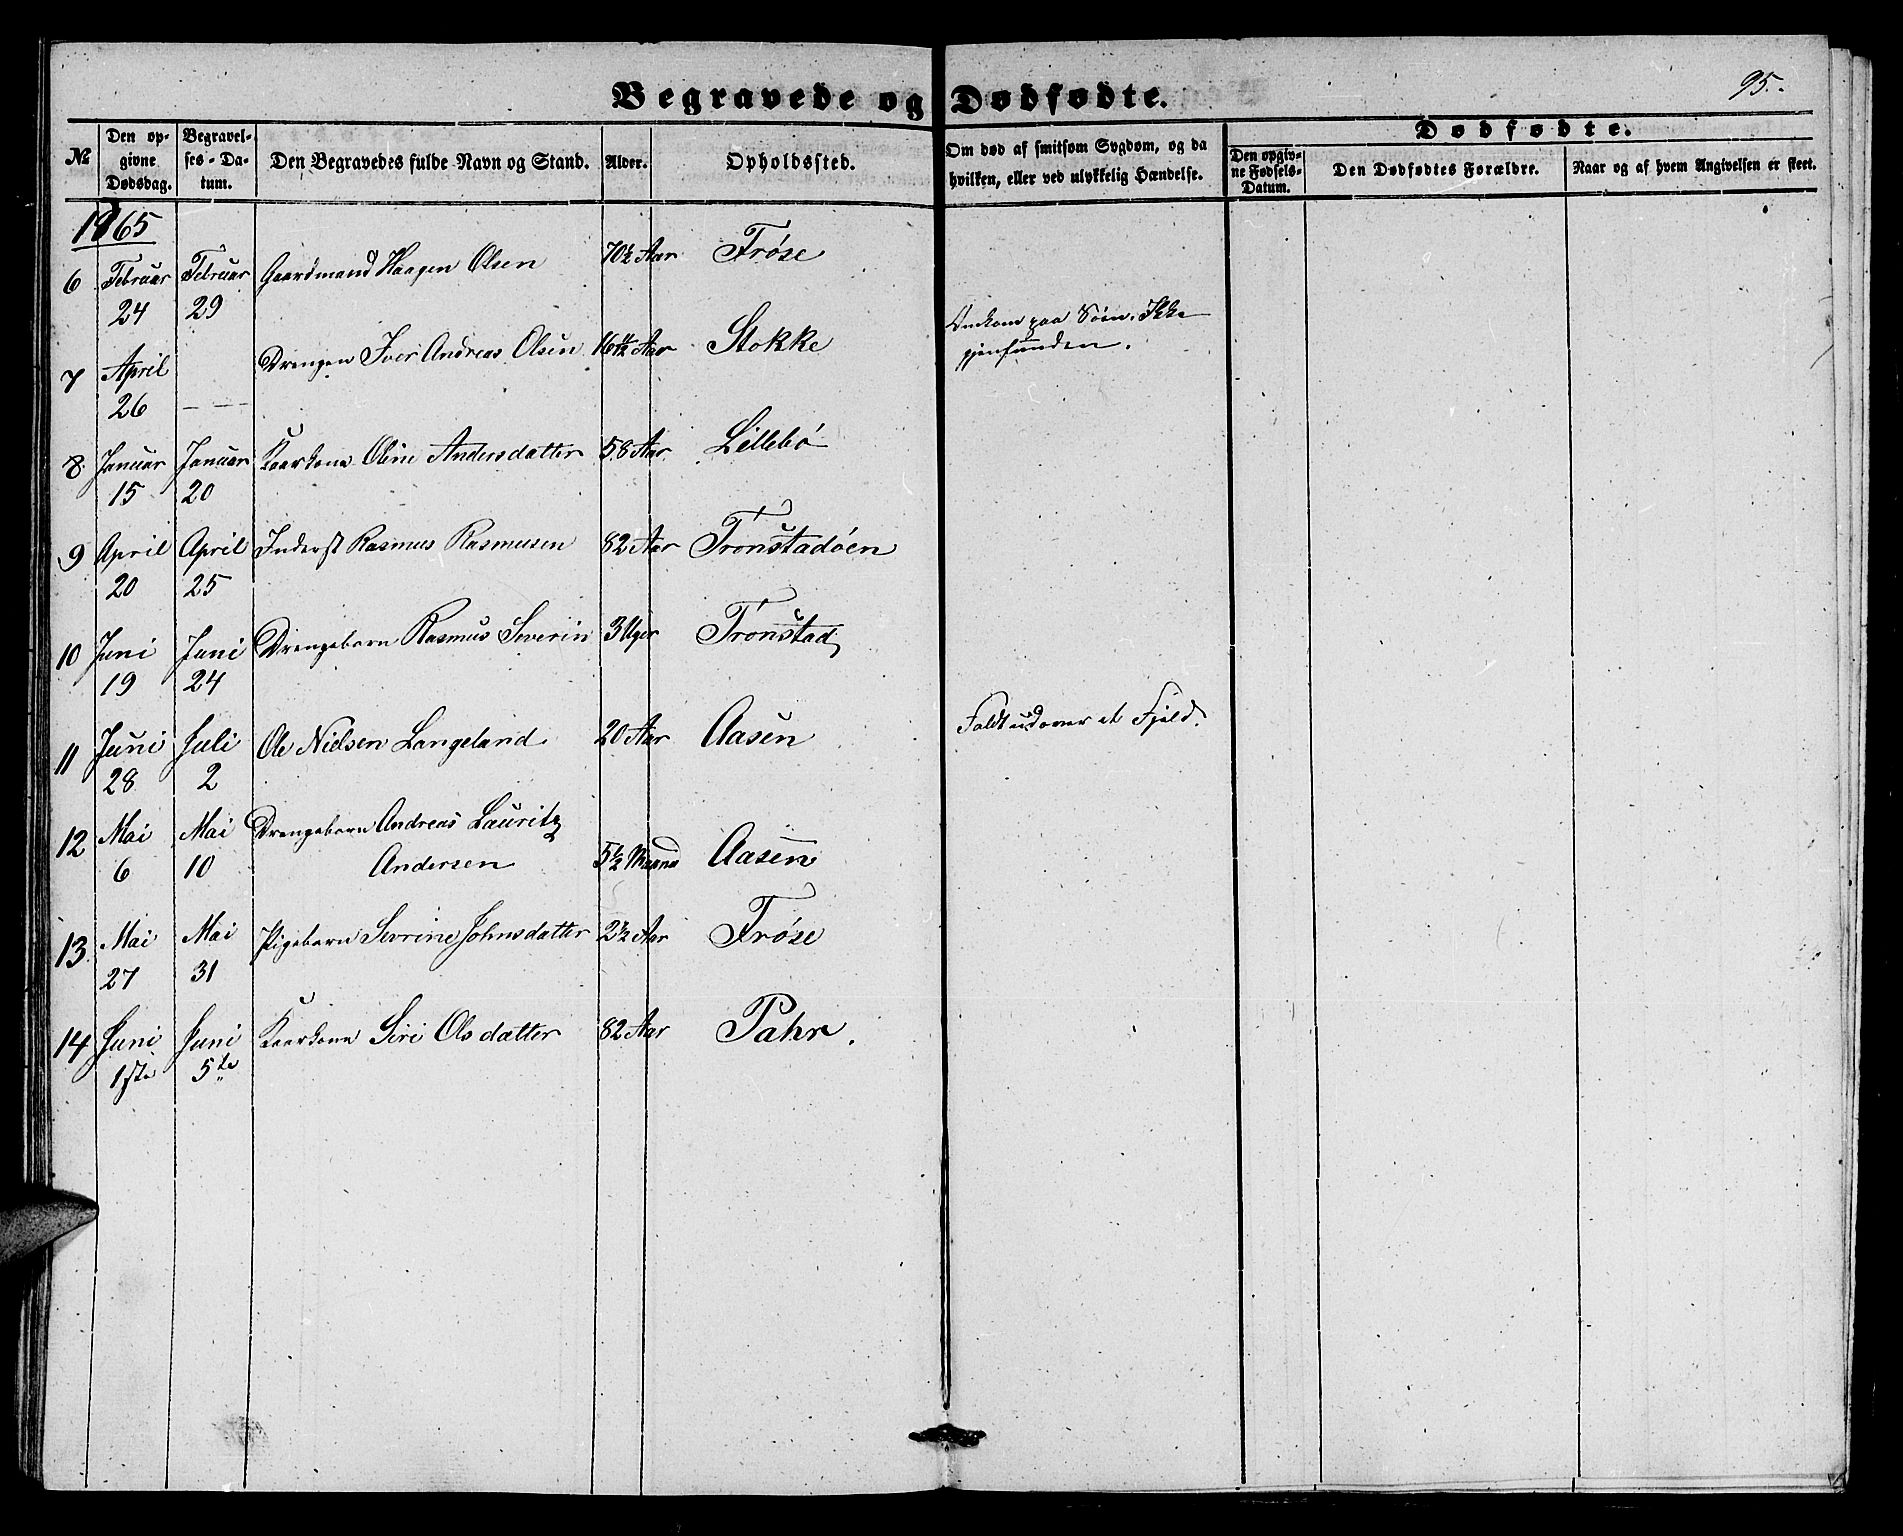 Begravede og Dødfødte.
95.
№
Den op-
givne
Dødsdag.
Begravel-
ses-Da-
tum.
Den Begravedes fulde Navn og Stand.
Alder.
Opholdssted.
Om død af smitsom Sygdom, og da
hvilken, eller ved ulykkelig Hændelse.
Dødfødte.
Den opgiv-
ne Fødsels-
Datum.
Den Dødfødtes Forældre.
Naar og af hvem Angivelsen er skeet.
1865
6 Februar Februar Gaardmand Haagen Olsen 70½ Aar Frøse
24 29
7 April Drengen Iver Andreas Olsen 16 Aar Stokke Omkom paa Søen. Ikke
26 — — gjenfunden.
8 Januar Januar Kaarkone Oline Andersdatter 58 Aar Lillebø
15 20
9 April April Inderst Rasmus Rasmusen 82 Aar Tronstadøen
20 25
10 Juni Juni Drengebarn Rasmus Severin 3 Uger Tronstad
19 24
11 Juni Juli Ole Nielsen Langeland 20 Aar Aasen Faldt udover et Fjeld.
28 2
12 Mai Mai Drengebarn Andreas Lauritz
6 10 Andersen 5½ Maaned Aasen
13 Mai Mai Pigebarn Sevrine Johnsdatter 2½ Aar Frøse
27 31
14 Juni Juni Kaarkone Siri Olsdatter 82 Aar Pahr.
1ste 5te